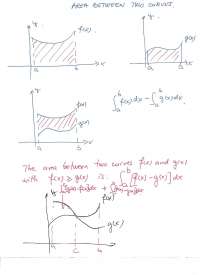 AREA BETWEEN TWO CURVES
y
f(x)
a
b
x
y
g(x)
a
b
x
y
f(x)
g(x)
a
b
x
∫_a^b f(x)dx − ∫_a^b g(x)dx
The area between two curves f(x) and g(x)
with f(x) ≥ g(x) is: ∫_a^b [f(x) − g(x)] dx
y
f(x)
g(x)
a
c
b
x